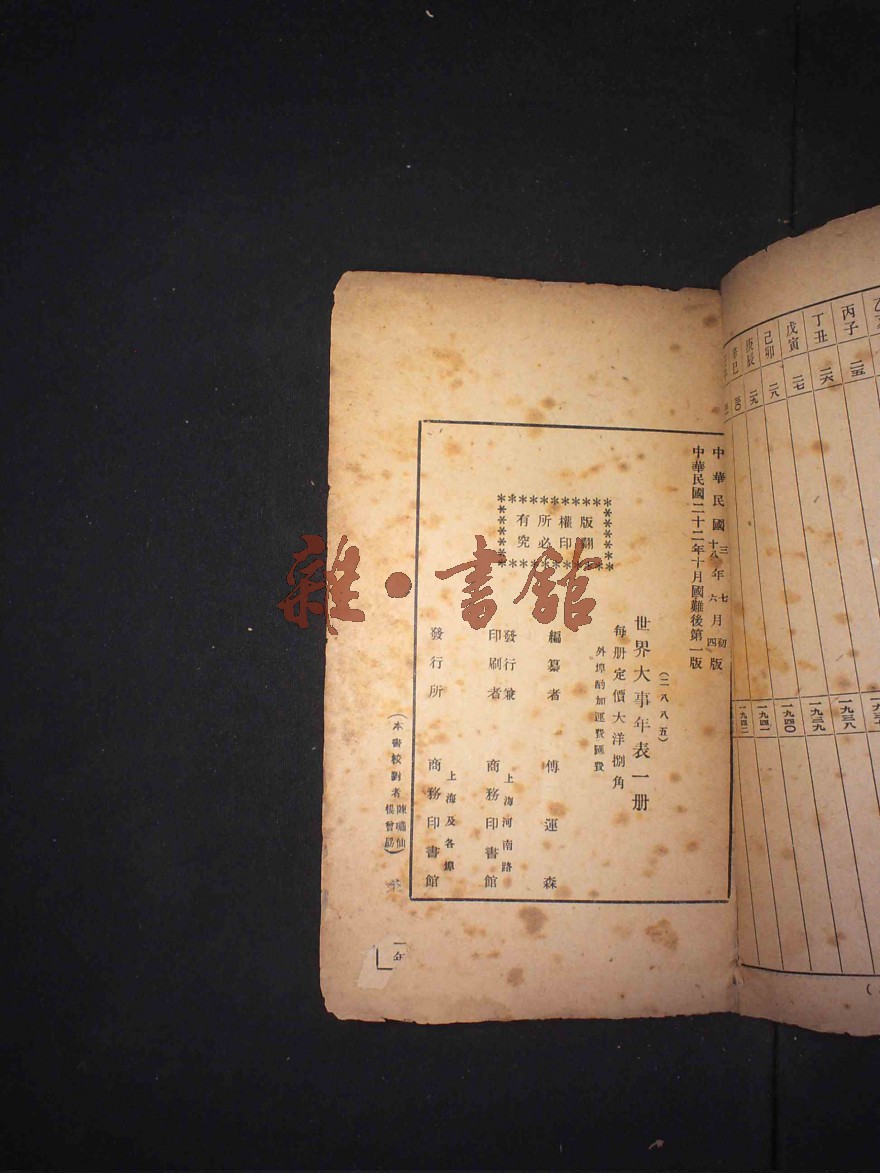 中華民國三年七月初版
十八年六月四版
中華民國二十二年十月國難後第一版
(二八八五)
世界大事年表一册
每册定價大洋捌角
外埠酌加運費匯費
版權所有
翻印必究
編纂者 傅運森
發行兼印刷者 上海河南路 商務印書館
發行所 上海及各埠 商務印書館
(本書校對者陳嘯仙 楊曾勗)
丙子 二五 一九三八
丁丑 二六 一九三九
戊寅 二七 一九四〇
己卯 二八 一九四一
庚辰 二九 一九四二
辛巳 三〇
雜·書館